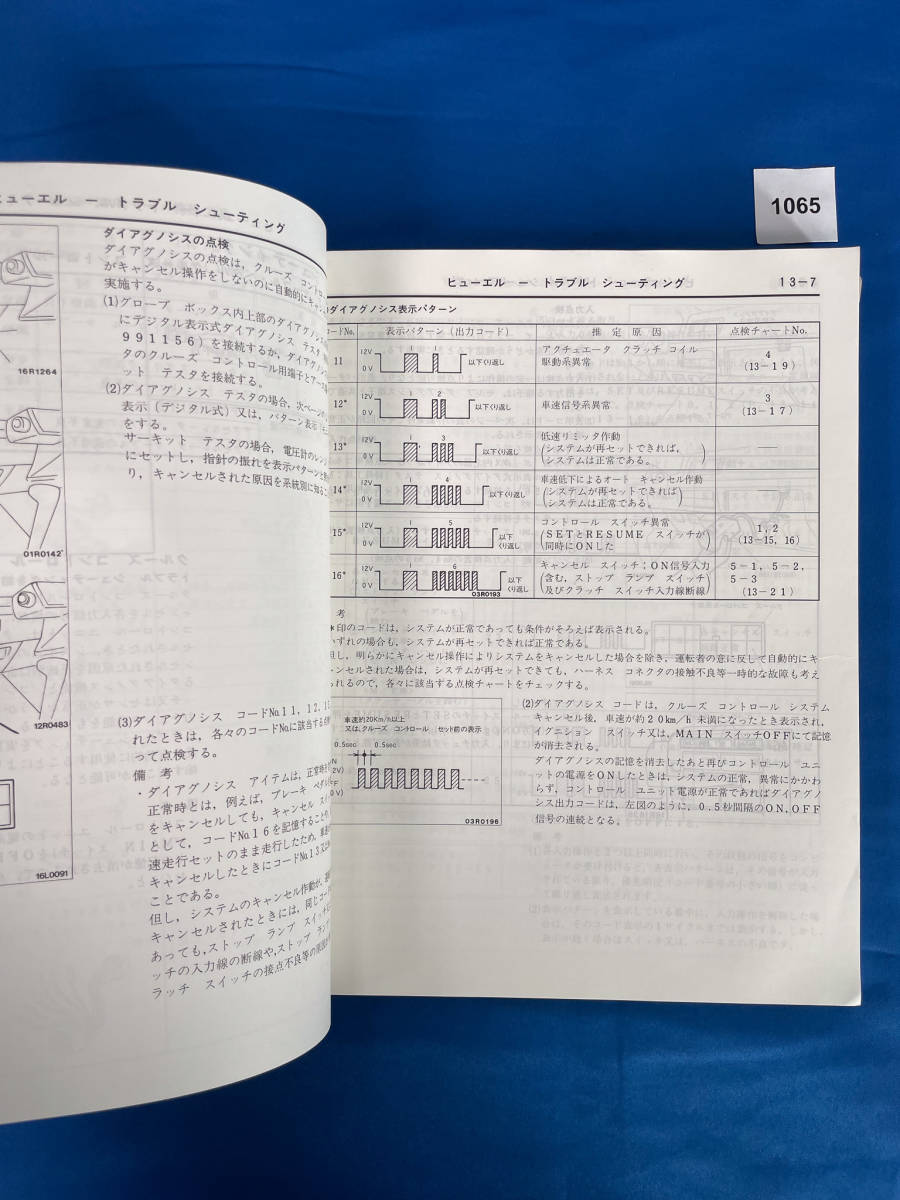 1065
ヒューエル ー トラブル シューティング
16R1264
01R0142
12R0483
16L0091
ダイアグノシスの点検
ダイアグノシスの点検は，クルーズ コントロ
がキャンセル操作をしないのに自動的にキャン
実施する。
(1)グローブ ボックス内上部のダイアグノシス
にデジタル表示式ダイアグノシス テスタ
991156）を接続するか，ダイアグノ
タのクルーズ コントロール用端子とアース
ット テスタを接続する。
(2)ダイアグノシス テスタの場合，次ページ
表示（デジタル式）又は，パターン表示
をする。
サーキット テスタの場合，電圧計のレン
にセットし，指針の振れを表示パターンと
り，キャンセルされた原因を系統別に知る
(3)ダイアグノシス コードNo.11，12，15
れたときは，各々のコードNo.に該当する
って点検する。
備 考
・ダイアグノシス アイテムは，正常時
正常時とは，例えば，ブレーキ ペダル
をキャンセルしても，キャンセル ス
として，コードNo.16を記憶すること
速走行セットのまま走行したため，車速
キャンセルしたときにコードNo.13又
ことである。
但し，システムのキャンセル作動が，
キャンセルされたときには，同じコー
あっても，ストップ ランプ スイッチ
ッチの入力線の断線や，ストップ ラン
ラッチ スイッチの接点不良等の
ヒューエル ー トラブル シューティング 13－7
ダイアグノシス表示パターン
ードNo. 表示パターン（出力コード） 推定原因 点検チャートNo.
11 12V 0V 1 1 以下くり返し アクチュエータ クラッチ コイル 4
駆動系異常 (13－19)
12* 12V 0V 1 2 以下くり返し 車速信号系異常 3
(13－17)
13* 12V 0V 1 3 以下くり返し 低速リミッタ作動
(システムが再セットできれば，
システムは正常である。)
14* 12V 0V 1 4 以下くり返し 車速低下によるオート キャンセル作動
(システムが再セットできれば
システムは正常である。)
15* 12V 0V 1 5 以下くり返し コントロール スイッチ異常 1，2
(SETとRESUME スイッチが (13－15, 16)
同時にONした)
16* 12V 0V 1 6 以下くり返し キャンセル スイッチ；ON信号入力 5－1，5－2，
(含む，ストップ ランプ スイッチ 5－3
及びクラッチ スイッチ入力線断線) (13－21)
03R0193
考
*印のコードは，システムが正常であっても条件がそろえば表示される。
いずれの場合も，システムが再セットできれば正常である。
但し，明らかにキャンセル操作によりシステムをキャンセルした場合を除き，運転者の意に反して自動的にキ
ャンセルされた場合は，システムが再セットできても，ハーネス コネクタの接触不良等一時的な故障も考え
られるので，各々に該当する点検チャートをチェックする。
車速約20Km/h以上
又は,クルーズ コントロール セット前の表示
0.5sec 0.5sec
ON
12V)
FF
0V)
03R0196
(2)ダイアグノシス コードは，クルーズ コントロール システム
キャンセル後，車速が約20km/h 未満になったとき表示され，
イグニション スイッチ又は，MAIN スイッチOFFにて記憶
が消去される。
ダイアグノシスの記憶を消去したあと再びコントロール ユニ
ットの電源をONしたときは，システムの正常，異常にかかわ
らず，コントロール ユニット電源が正常であればダイアグノ
シス出力コードは，左図のように，0.5秒間隔のON，OFF
信号の連続となる。